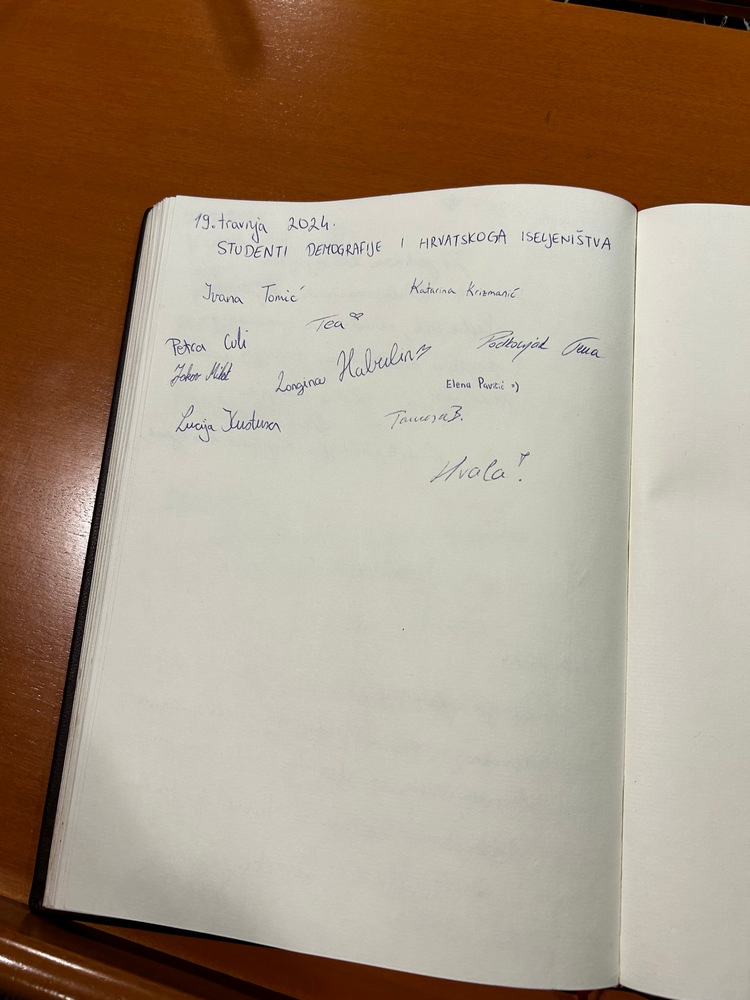 19. travnja 2024.
STUDENTI DEMOGRAFIJE I HRVATSKOGA ISELJENIŠTVA
Ivana Tomić
Katarina Krizmanić
Tea
Petra Culi
Jakov Milot
Longina Habulin
Podkonjak
Elena Pavičić :)
Lucija Kustura
Tamara B.
Hvala!